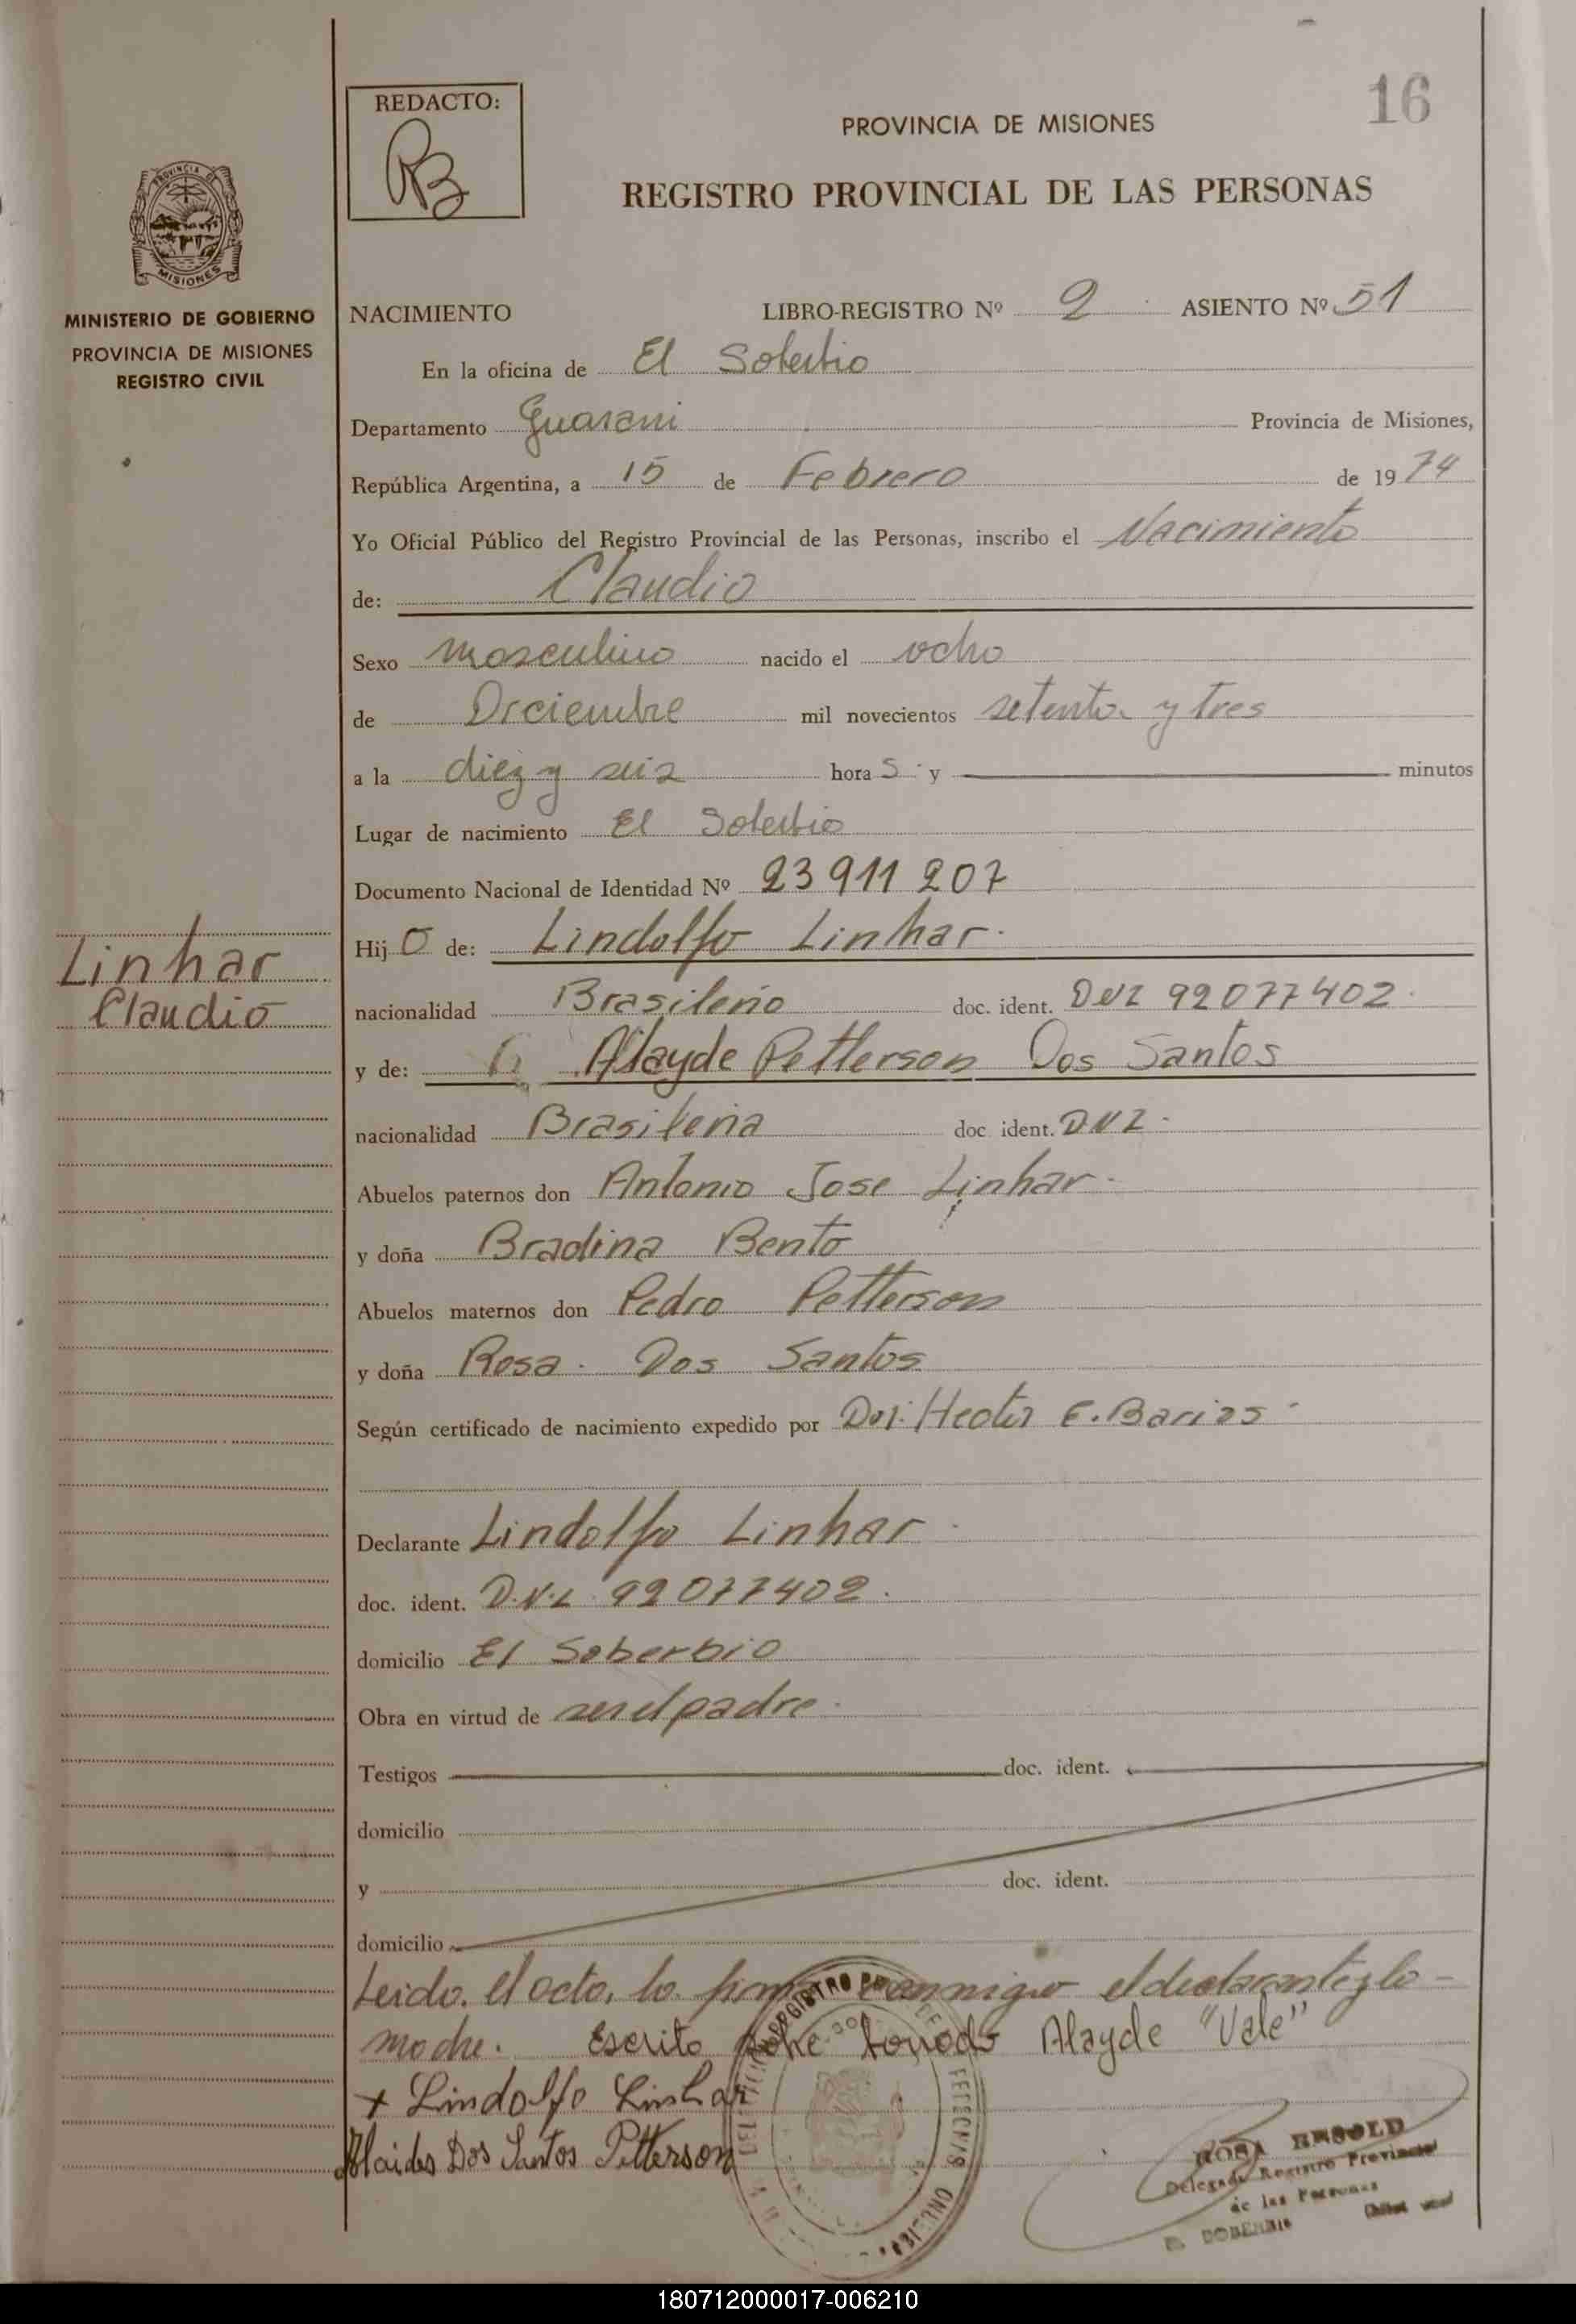 16
REDACTO:
RB
PROVINCIA DE MISIONES
REGISTRO PROVINCIAL DE LAS PERSONAS
PROVINCIA DE
MISIONES
MINISTERIO DE GOBIERNO
PROVINCIA DE MISIONES
REGISTRO CIVIL
NACIMIENTO LIBRO-REGISTRO Nº 2 ASIENTO Nº 51
En la oficina de El Soberbio
Departamento Guarani Provincia de Misiones,
República Argentina, a 15 de Febrero de 1974
Yo Oficial Público del Registro Provincial de las Personas, inscribo el Nacimiento
de: Claudio
Sexo masculino nacido el ocho
de Diciembre mil novecientos setenta y tres
a la diez y seis hora S y minutos
Lugar de nacimiento El Soberbio
Documento Nacional de Identidad Nº 23 911 207
Linhar
Claudio
Hij O de: Lindolfo Linhar.
nacionalidad Brasileño doc. ident. DNI 92077402.
y de: Alayde Petterson Dos Santos
nacionalidad Brasileña doc. ident. DNI -
Abuelos paternos don Antonio Jose Linhar.
y doña Bradina Bento
Abuelos maternos don Pedro Petterson
y doña Rosa. Dos Santos
Según certificado de nacimiento expedido por Hector E. Barias
Declarante Lindolfo Linhar
doc. ident. D.N.I. 92077402.
domicilio El Soberbio
Obra en virtud de ser el padre.
Testigos doc. ident.
domicilio
y doc. ident.
domicilio
Leido. el acto, lo firma conmigo el declarante y la
madre. Escrito sobre borrado Alayde "Vale"
+ Lindolfo Linhar
Alaides Dos Santos Petterson
ROSA
Delegada Registro Provincial
de las Personas
EL SOBERBIO
180712000017-006210